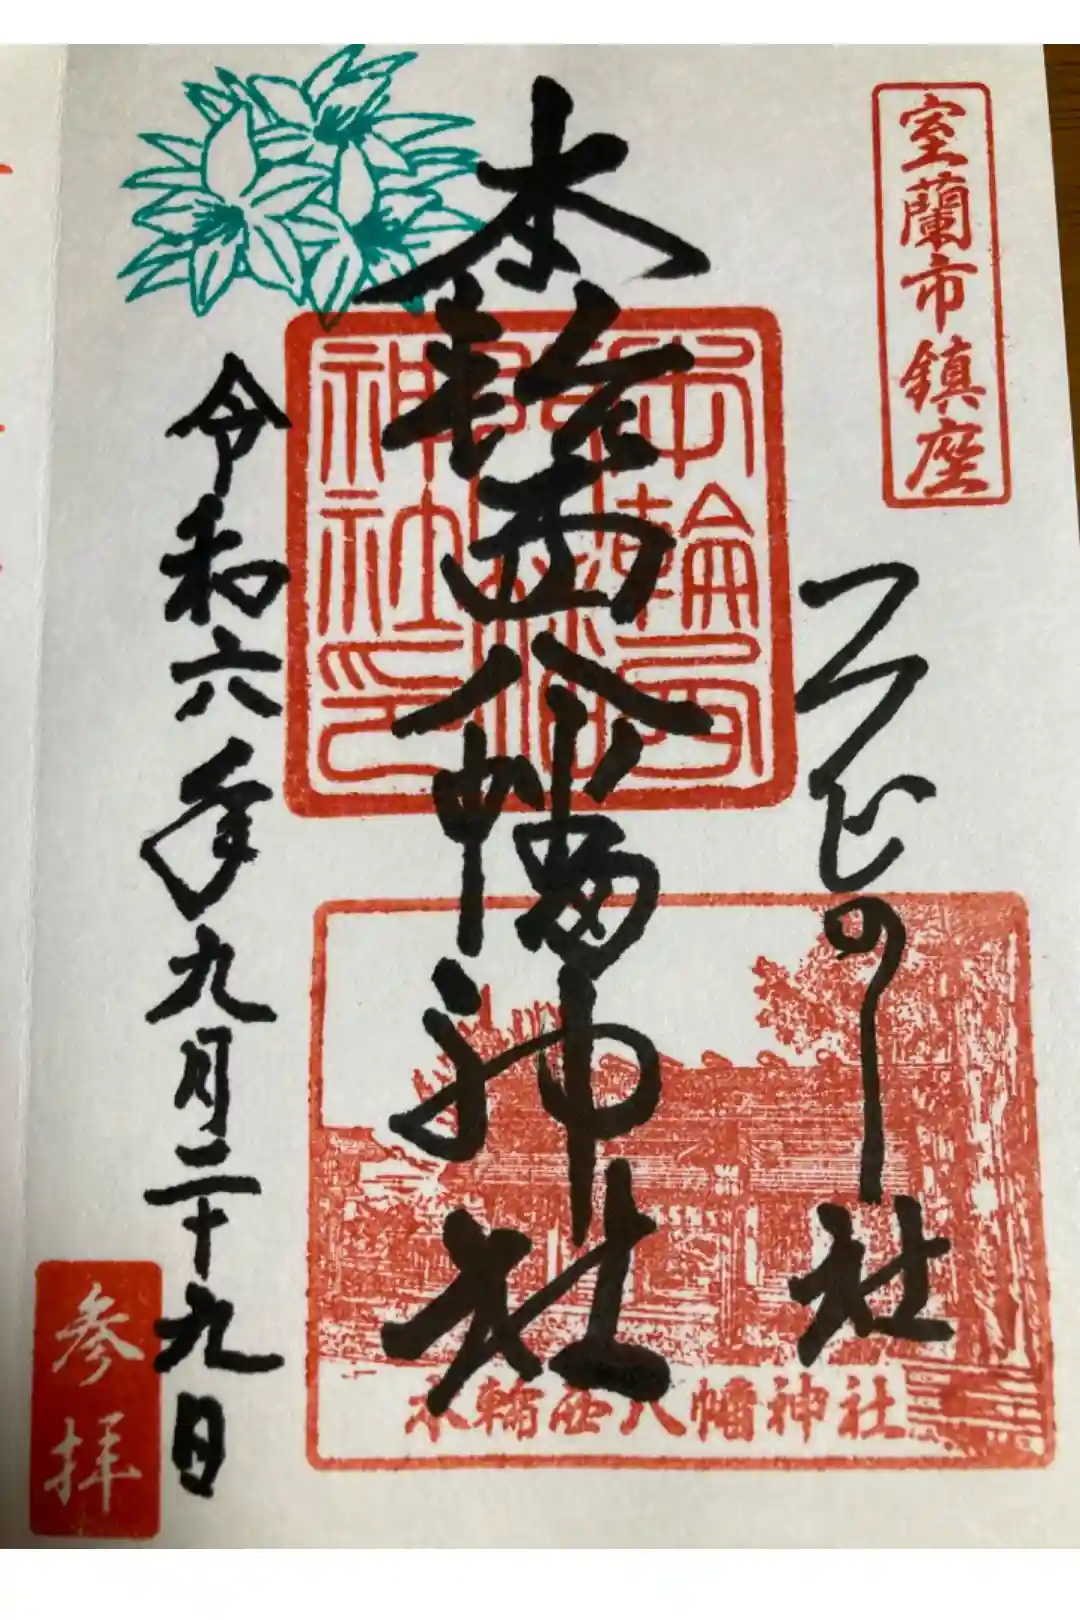 室蘭市鎮座
つつじの社
本輪西八幡神社
令和六年九月二十九日
参拝
本輪西
神社印
本輪西八幡神社